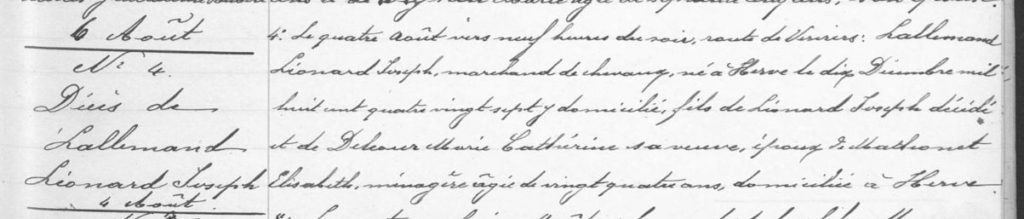 6 Août
Nº 4.
Décès de
Lallemand
Léonard Joseph
4 Août.
4º Le quatre Août vers neuf heures du soir, route de Verviers: Lallemand
Léonard Joseph, marchand de chevaux, né à Herve le dix Décembre mil
huit cent quatre vingt sept y domicilié, fils de Léonard Joseph décédé
et de Delcour Marie Cathérine sa veuve, époux de Mathonet
Elisabeth, ménagère âgée de vingt quatre ans, domiciliée à Herve